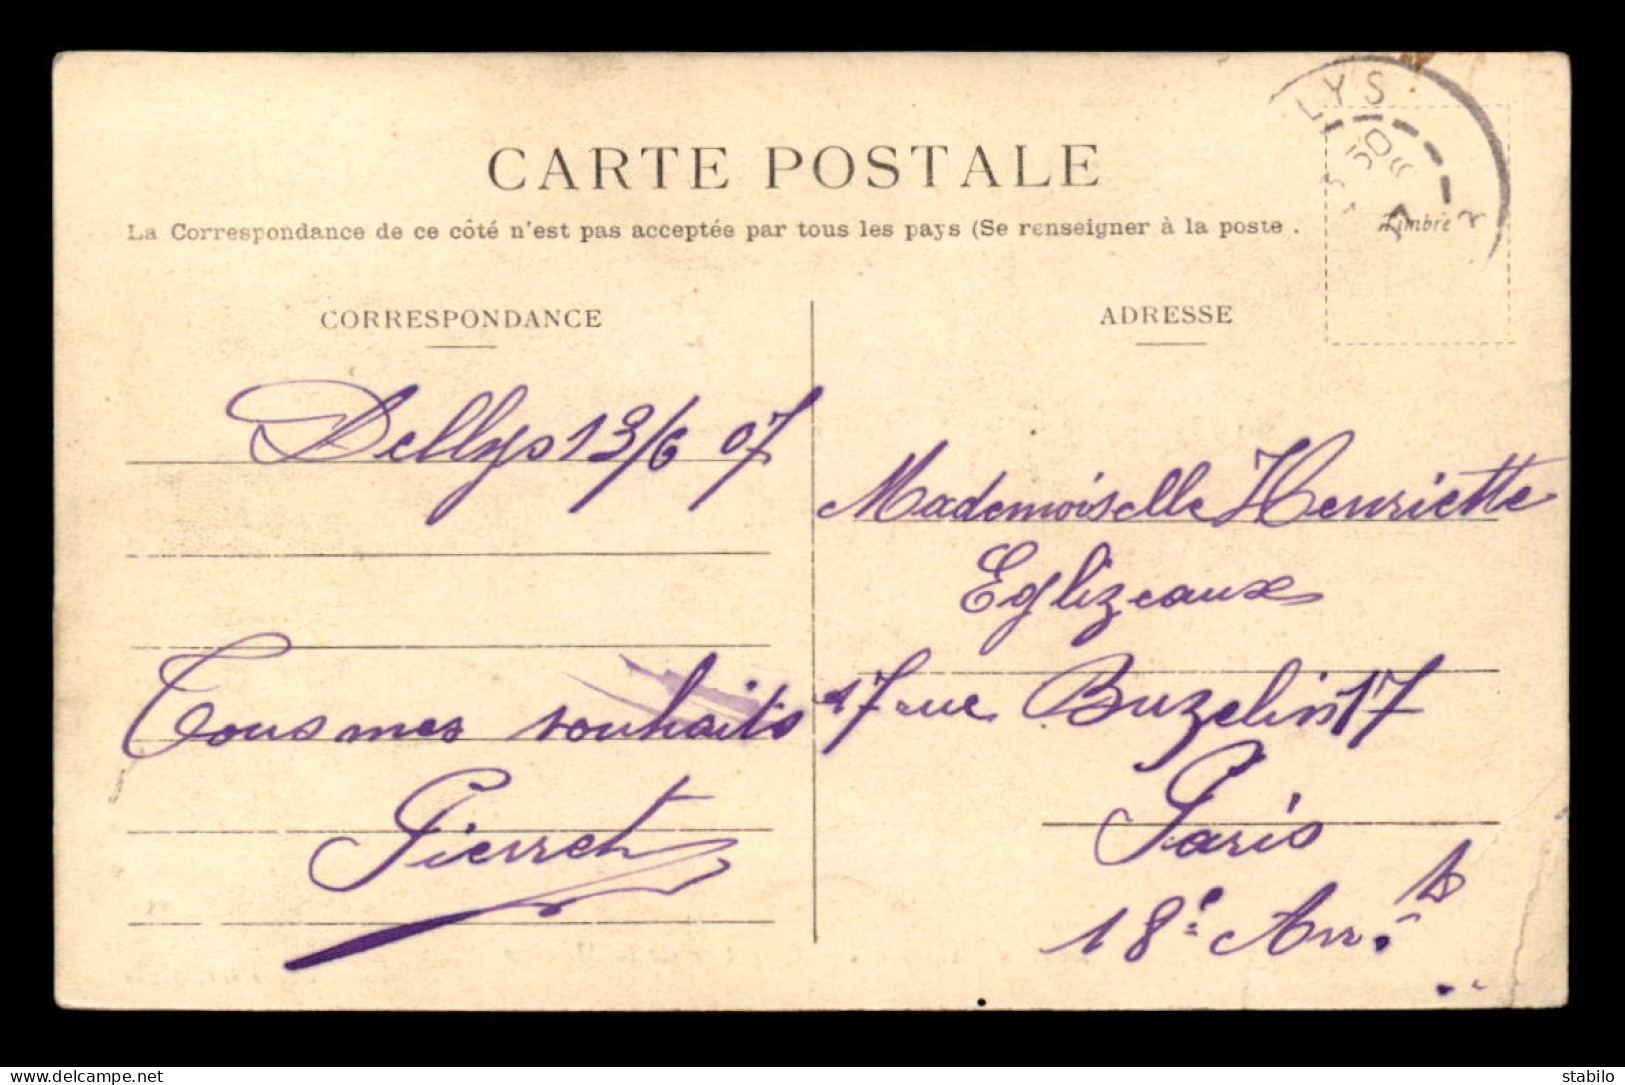 CARTE POSTALE
La Correspondance de ce côté n'est pas acceptée par tous les pays (Se renseigner à la poste .
LYS
Timbre
CORRESPONDANCE
Dellys 13/6 07
Tous mes souhaits
Pierret
ADRESSE
Mademoiselle Henriette
Eglizeaux
17 rue Buzelin 17
Paris
18e Arr.t
www.delcampe.net
stabilo